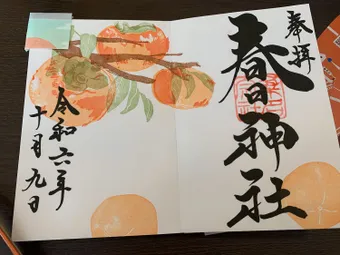 奉拝
春日神社
令和六年
十月九日